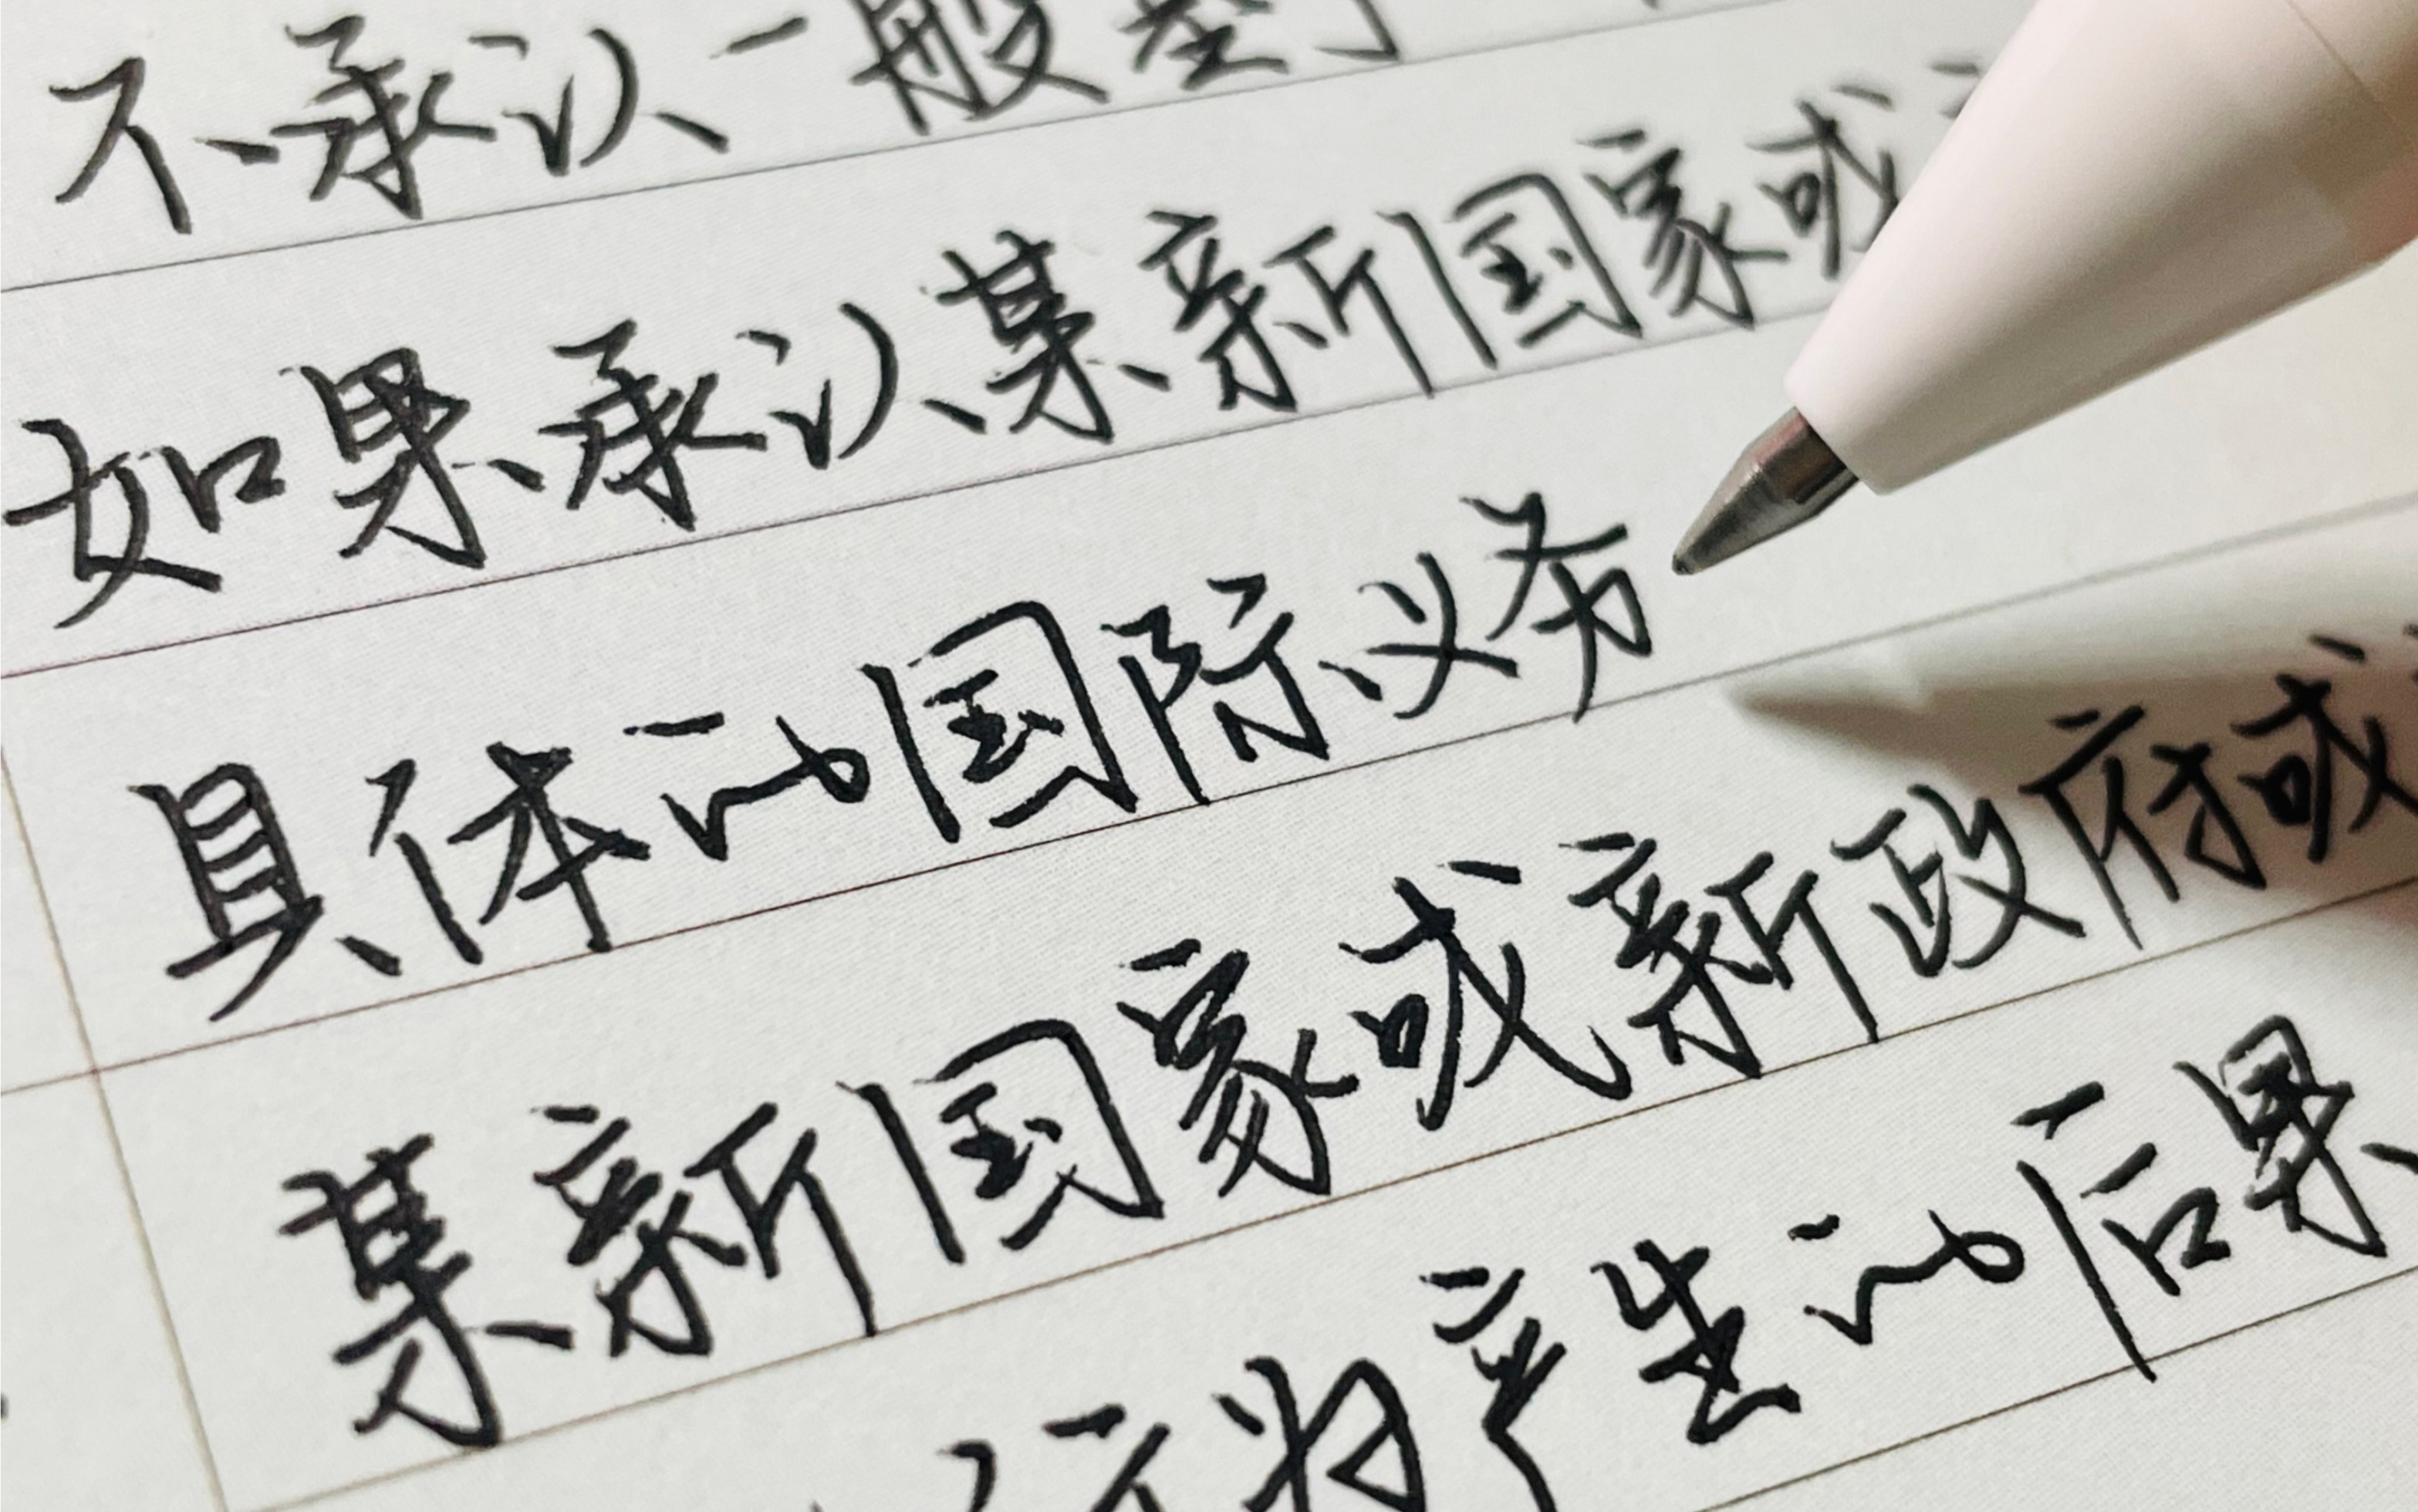 不承认一般型
如果承认某新国家或
具体的国际义务
某新国家或新政府或
行将产生的后果